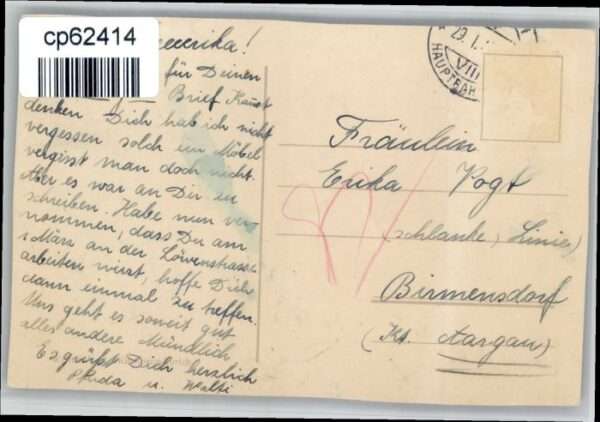 cp62414
eeeerika!
für Deinen
Brief Kannst
denken Dich hab ich nicht
vergessen solch ein Möbel
vergisst man doch nicht.
Aber es war an Dir zu
schreiben. Habe nun ver-
nommen, dass Du am
1 März an der Löwenstrasse
arbeiten wirst, hoffe Dich
dann einmal zu treffen.
Uns geht es soweit gut
alles andere Mündlich
Es grüßt Dich herzlich
Frida u. Walti
29. I.
VIII
HAUPTBAH
Fräulein
Erika Vogt
(schlanke, Linie)
Birmensdorf
(Kt. Aargau)